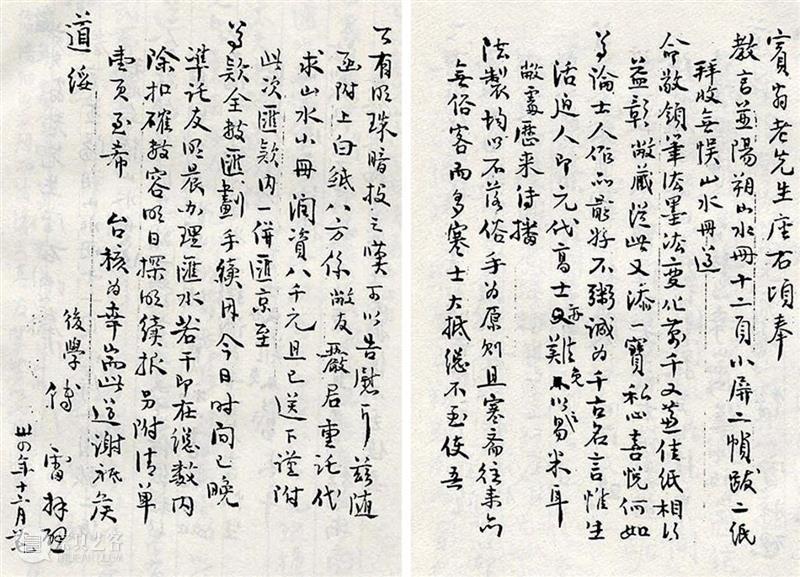 賓翁老先生座右頃奉
教言並陽朔山水冊十二頁小屏二幀跋二紙
拜收無悞山水冊遵
命敬領筆法墨法變化萬千又兼佳紙相得
益彰敝藏從此又添一寶私心喜悅何如
尊論士人作品最好不粥誠為千古名言惟生
活迫人即元代高士難免不以易米耳
敝處歷來待播
法製均以不落俗手為原則且寒齋往來亦
無俗客而多寒士大抵總不至使吾
公有明珠暗投之嘆可以告慰耳茲隨
函附上白紙八方係敝友嚴君重託代
求山水小冊潤資八千元且已送下謹附
此次匯款內一併匯京至
尊款全數匯劃手續因今日时间已晚
準託友明晨办理匯水若干即在總数內
除扣確数容明日探明續报另附清單
壹頁至希 台核為幸耑此道謝祗候
道綏
後學 傅雷拜啓
卅四年十二月